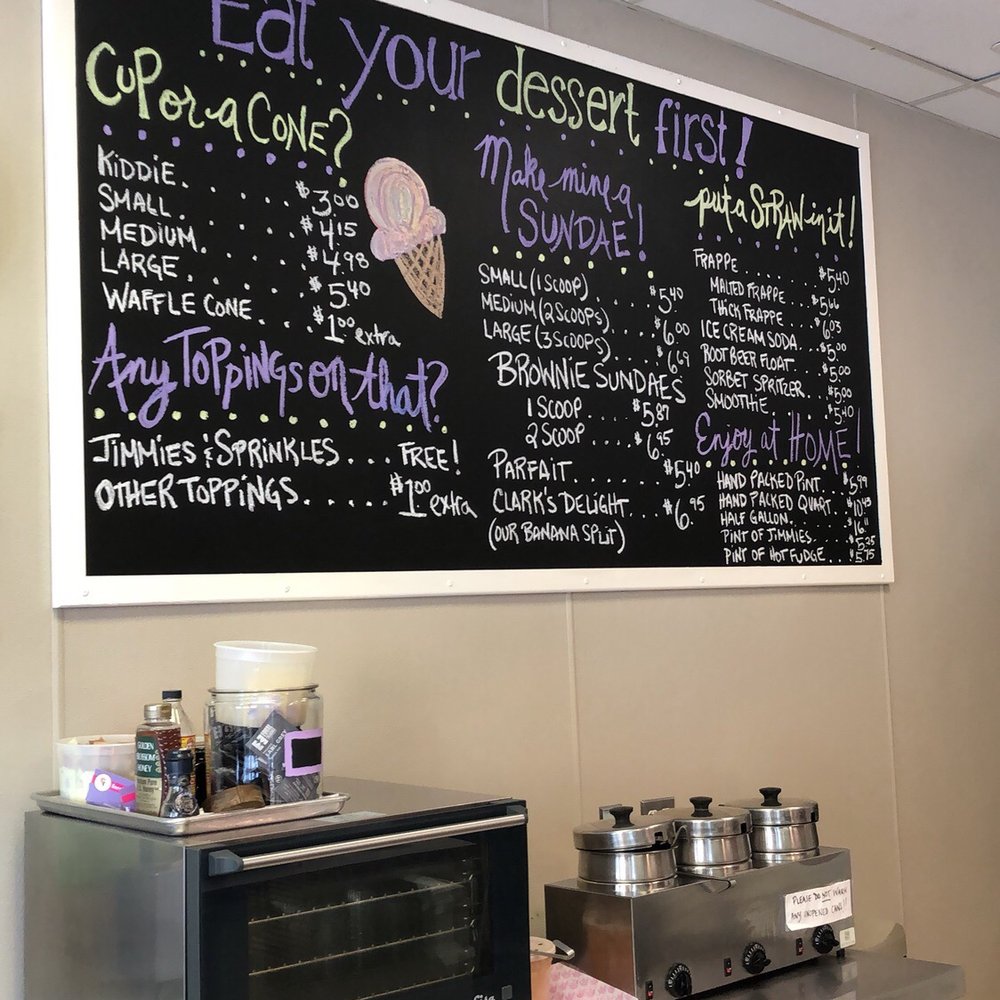 Eat your dessert first!
Cup or a CONE?
KIDDIE. . . . . $3.00
SMALL. . . . . $4.15
MEDIUM. . . . . $4.98
LARGE. . . . . $5.40
WAFFLE CONE. . . $1.00 extra
Any Toppings on that?
JIMMIES & SPRINKLES . . . FREE!
OTHER TOPPINGS . . . . . $1.00 extra
Make mine a
SUNDAE!
SMALL (1 SCOOP) . . . . $5.40
MEDIUM (2 SCOOPS) . . . . $6.00
LARGE (3 SCOOPS) . . . . $6.69
BROWNIE SUNDAES
1 SCOOP . . . . $5.87
2 SCOOP . . . . $6.95
PARFAIT . . . . . $5.40
CLARK'S DELIGHT. . . $6.95
(OUR BANANA SPLIT)
put a STRAW in it!
FRAPPE . . . . . $5.40
MALTED FRAPPE . . . $5.66
THICK FRAPPE . . . $6.03
ICE CREAM SODA. . . $5.00
ROOT BEER FLOAT . . $5.00
SORBET SPRITZER . . . $5.00
SMOOTHIE . . . . . $5.40
Enjoy at HOME!
HAND PACKED PINT . . . $5.99
HAND PACKED QUART . . . $10.43
HALF GALLON. . . . . $16.11
PINT OF JIMMIES. . . . $5.35
PINT OF HOT FUDGE. . . $5.75
GOLDEN
BLOSSOM
HONEY
EARL GREY
PLEASE DO NOT WARM
ANY UNOPENED CANS!!